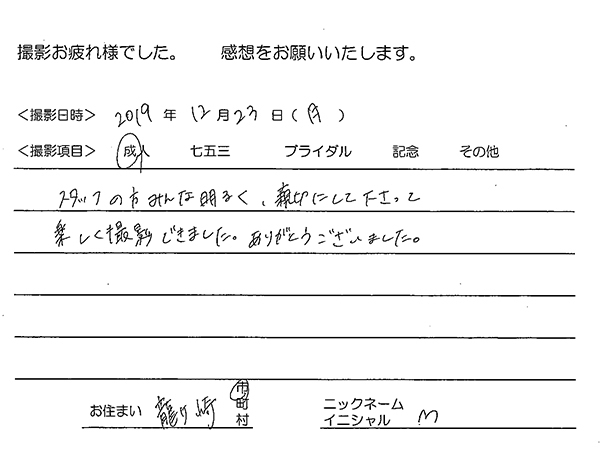 撮影お疲れ様でした。　感想をお願いいたします。
＜撮影日時＞ 2019 年 12 月 23 日（月）
＜撮影項目＞ 成人　七五三　ブライダル　記念　その他
スタッフの方みんな明るく、親切にして下さって
楽しく撮影できました。ありがとうございました。
お住まい 龍ヶ崎 市町村　ニックネーム イニシャル M